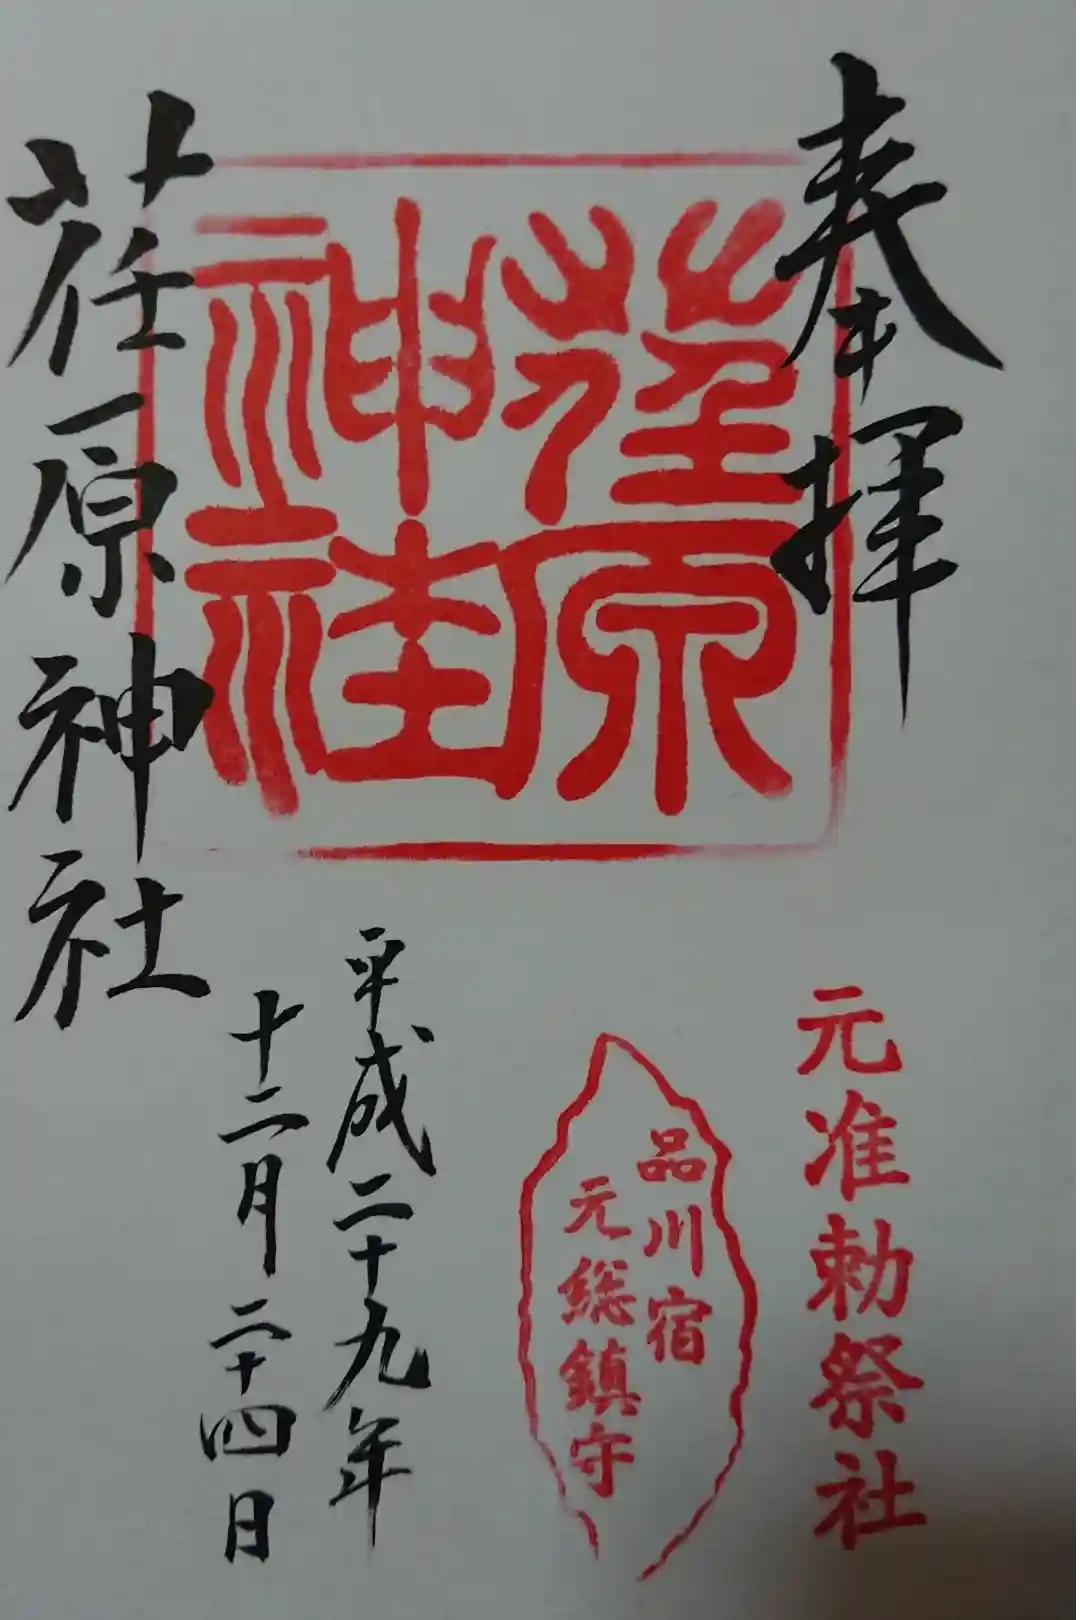 奉拝
荏原神社
元准勅祭社
品川宿
元総鎮守
平成二十九年
十二月二十四日
荏原神社